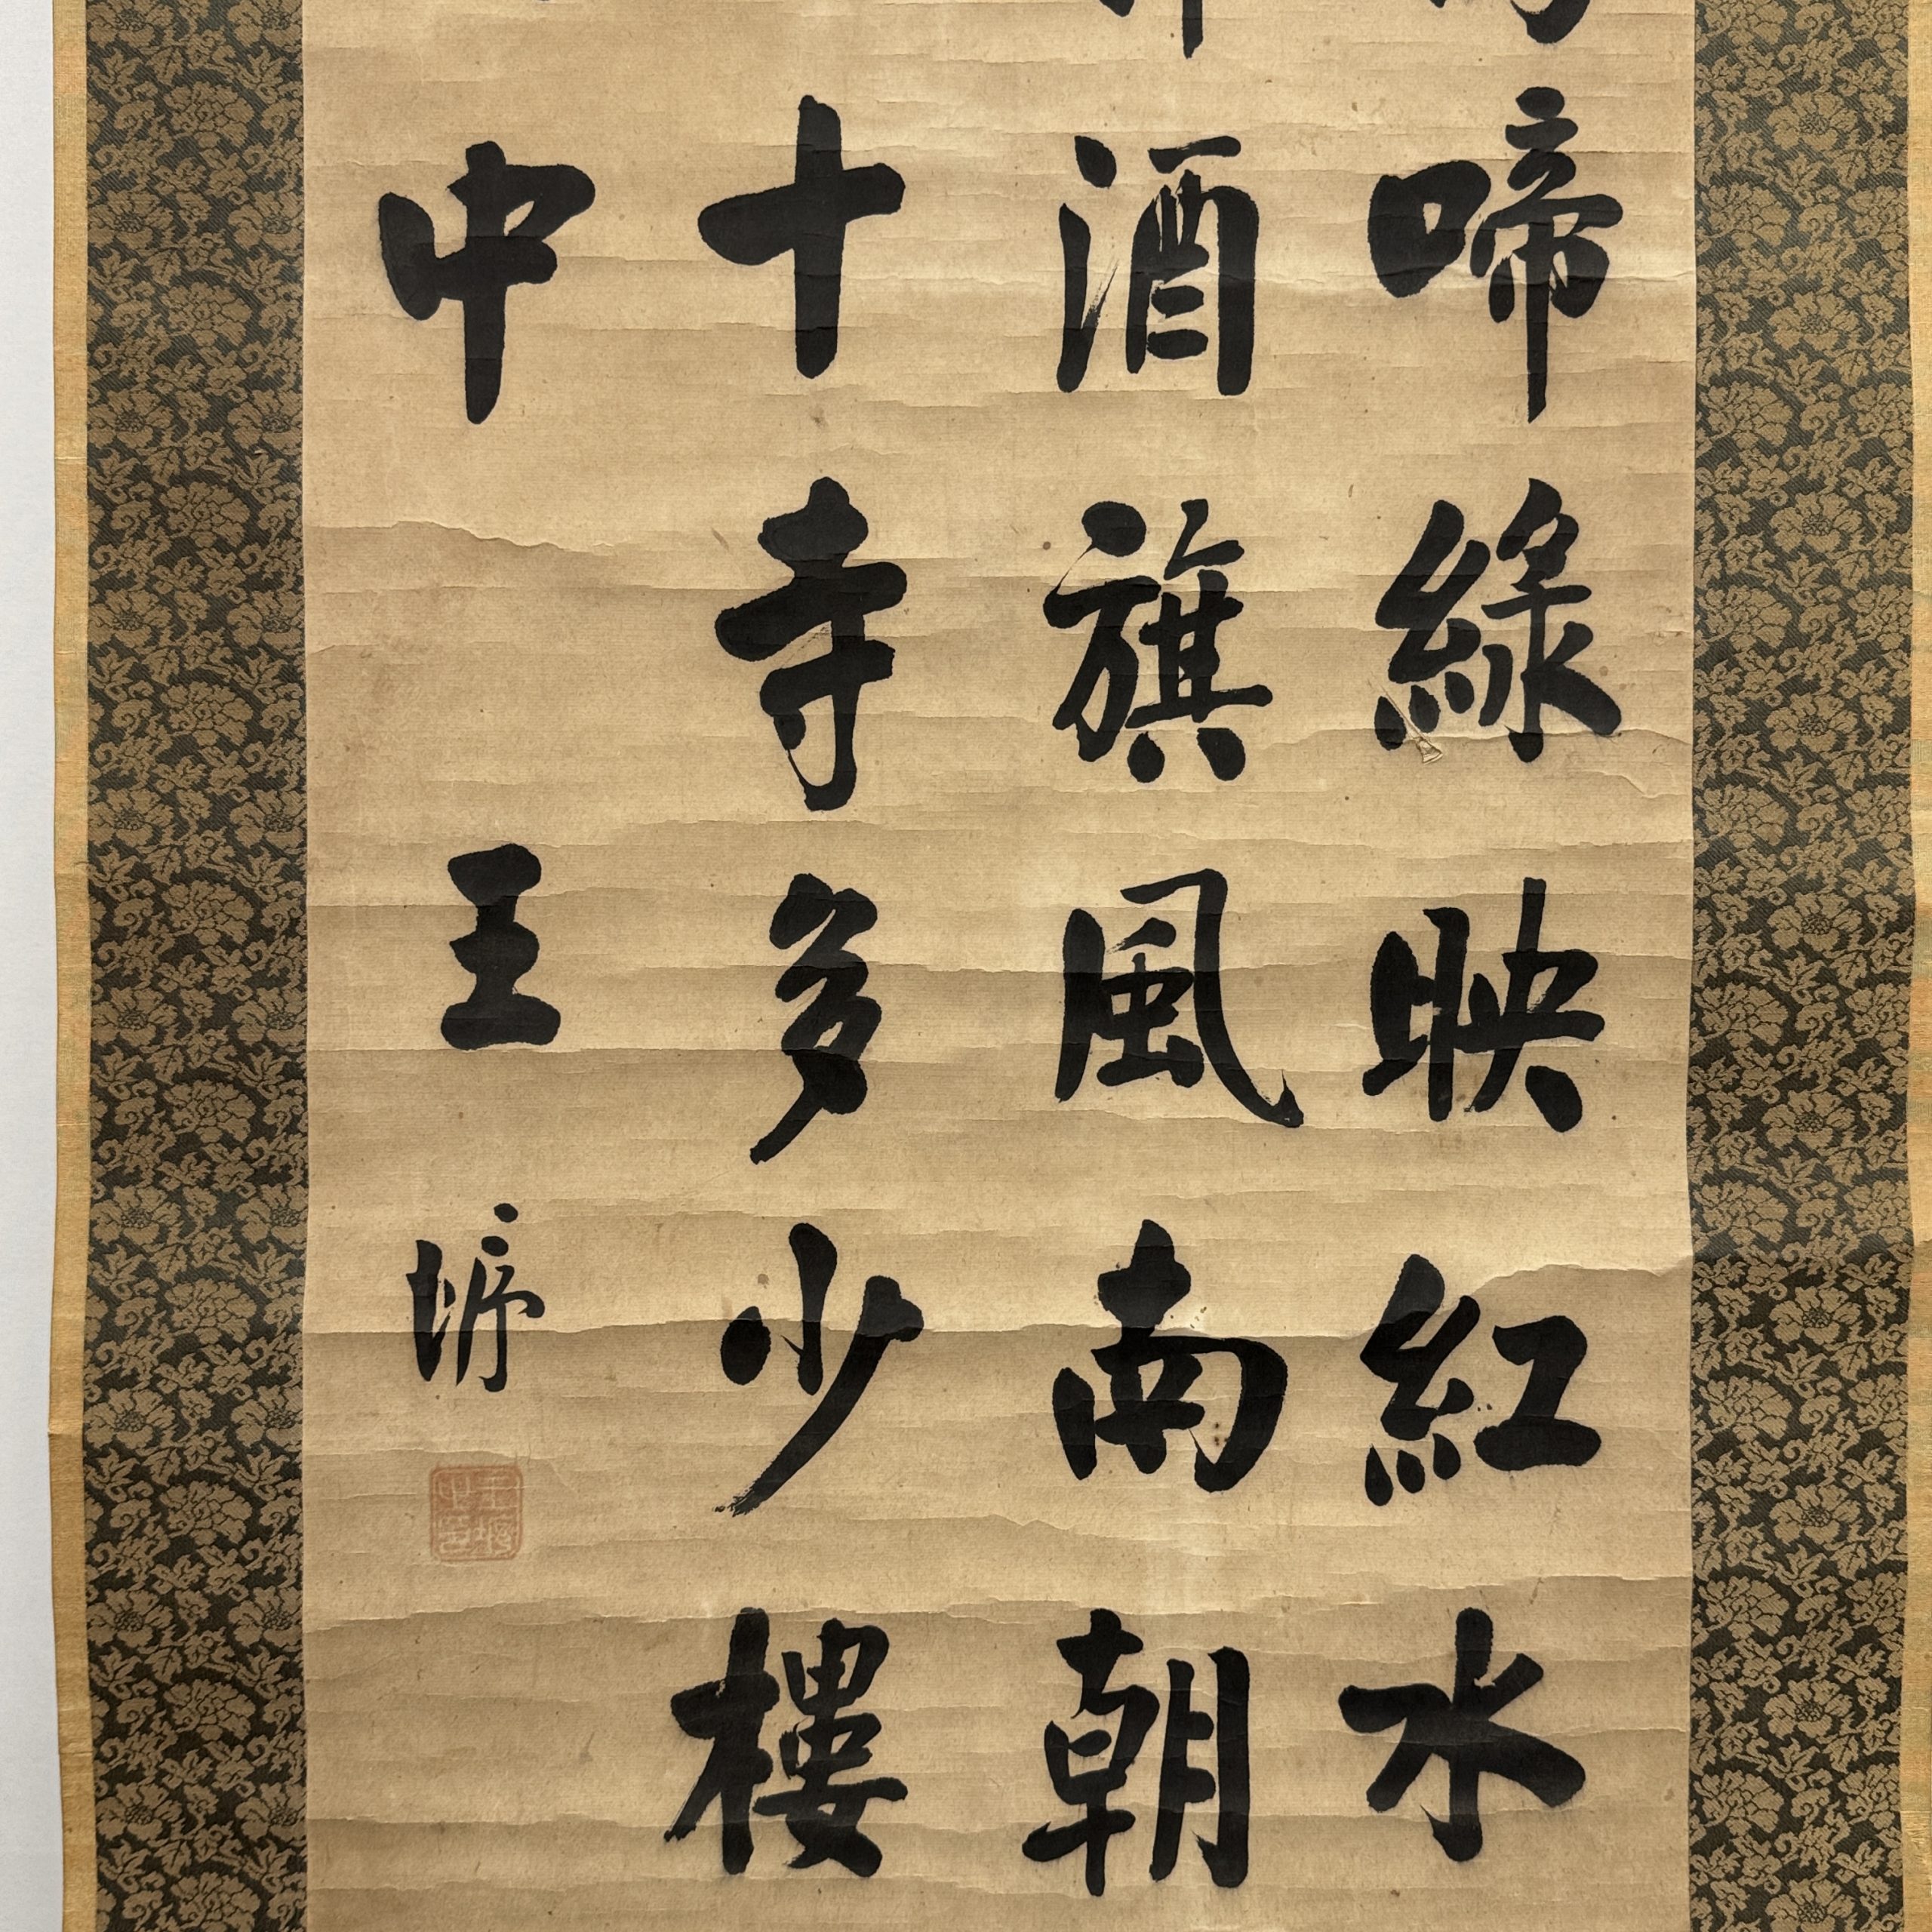 啼綠映紅水
酒旗風南朝
十寺多少樓
中
王垿